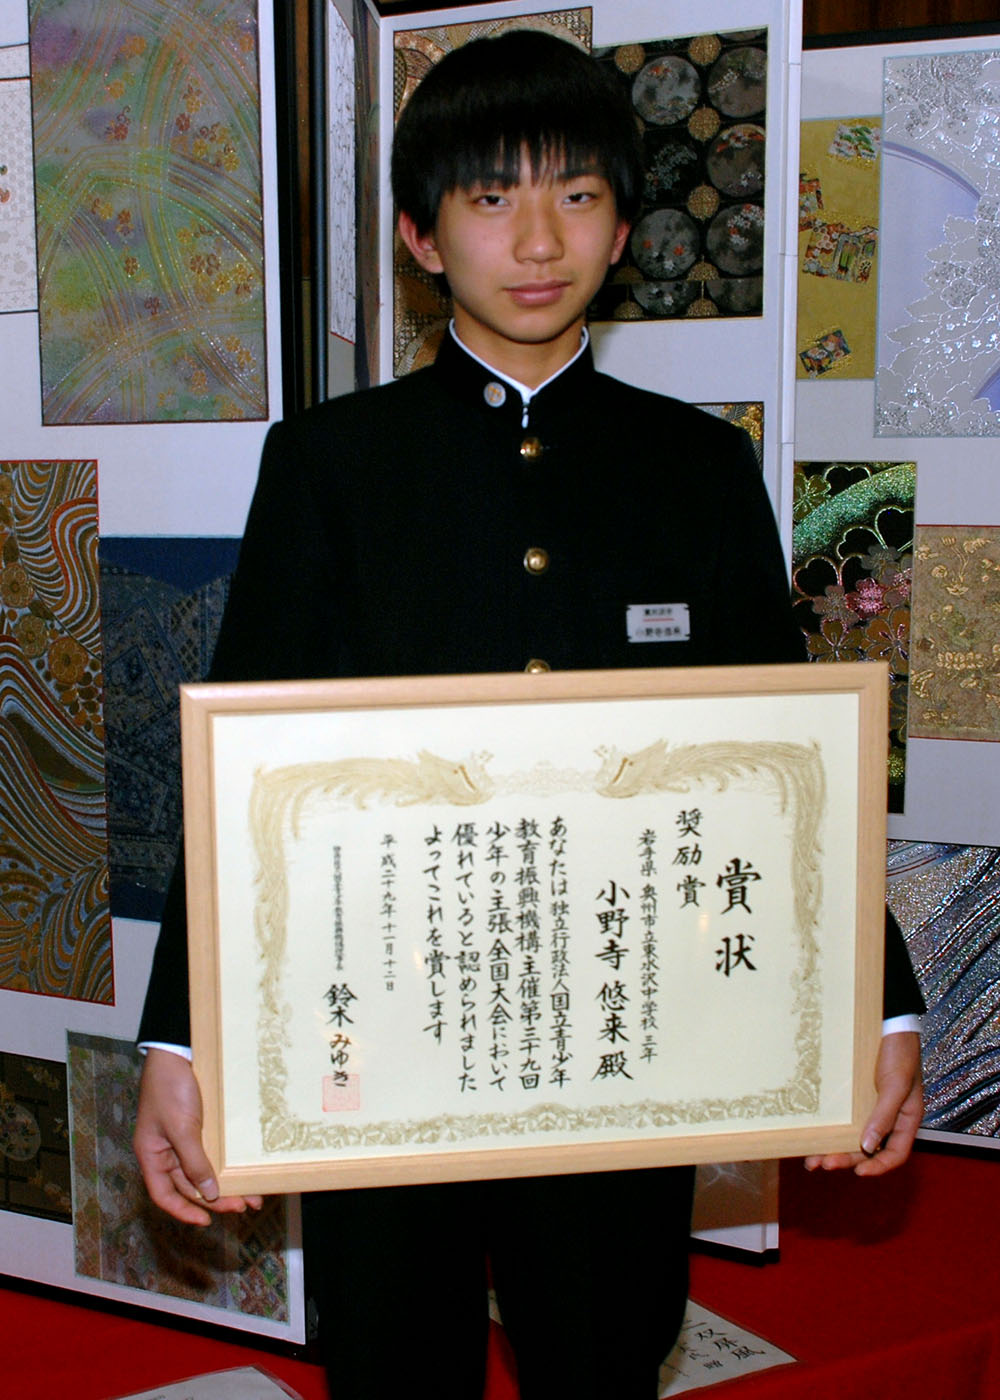 小野寺悠来
賞状
奨励賞
岩手県 奥州市立東水沢中学校 三年
小野寺 悠来 殿
あなたは独立行政法人国立青少年
教育振興機構主催第三十九回
少年の主張全国大会において
優れていると認められました
よってこれを賞します
平成二十九年十一月十二日
鈴木 みゆき
双屏風